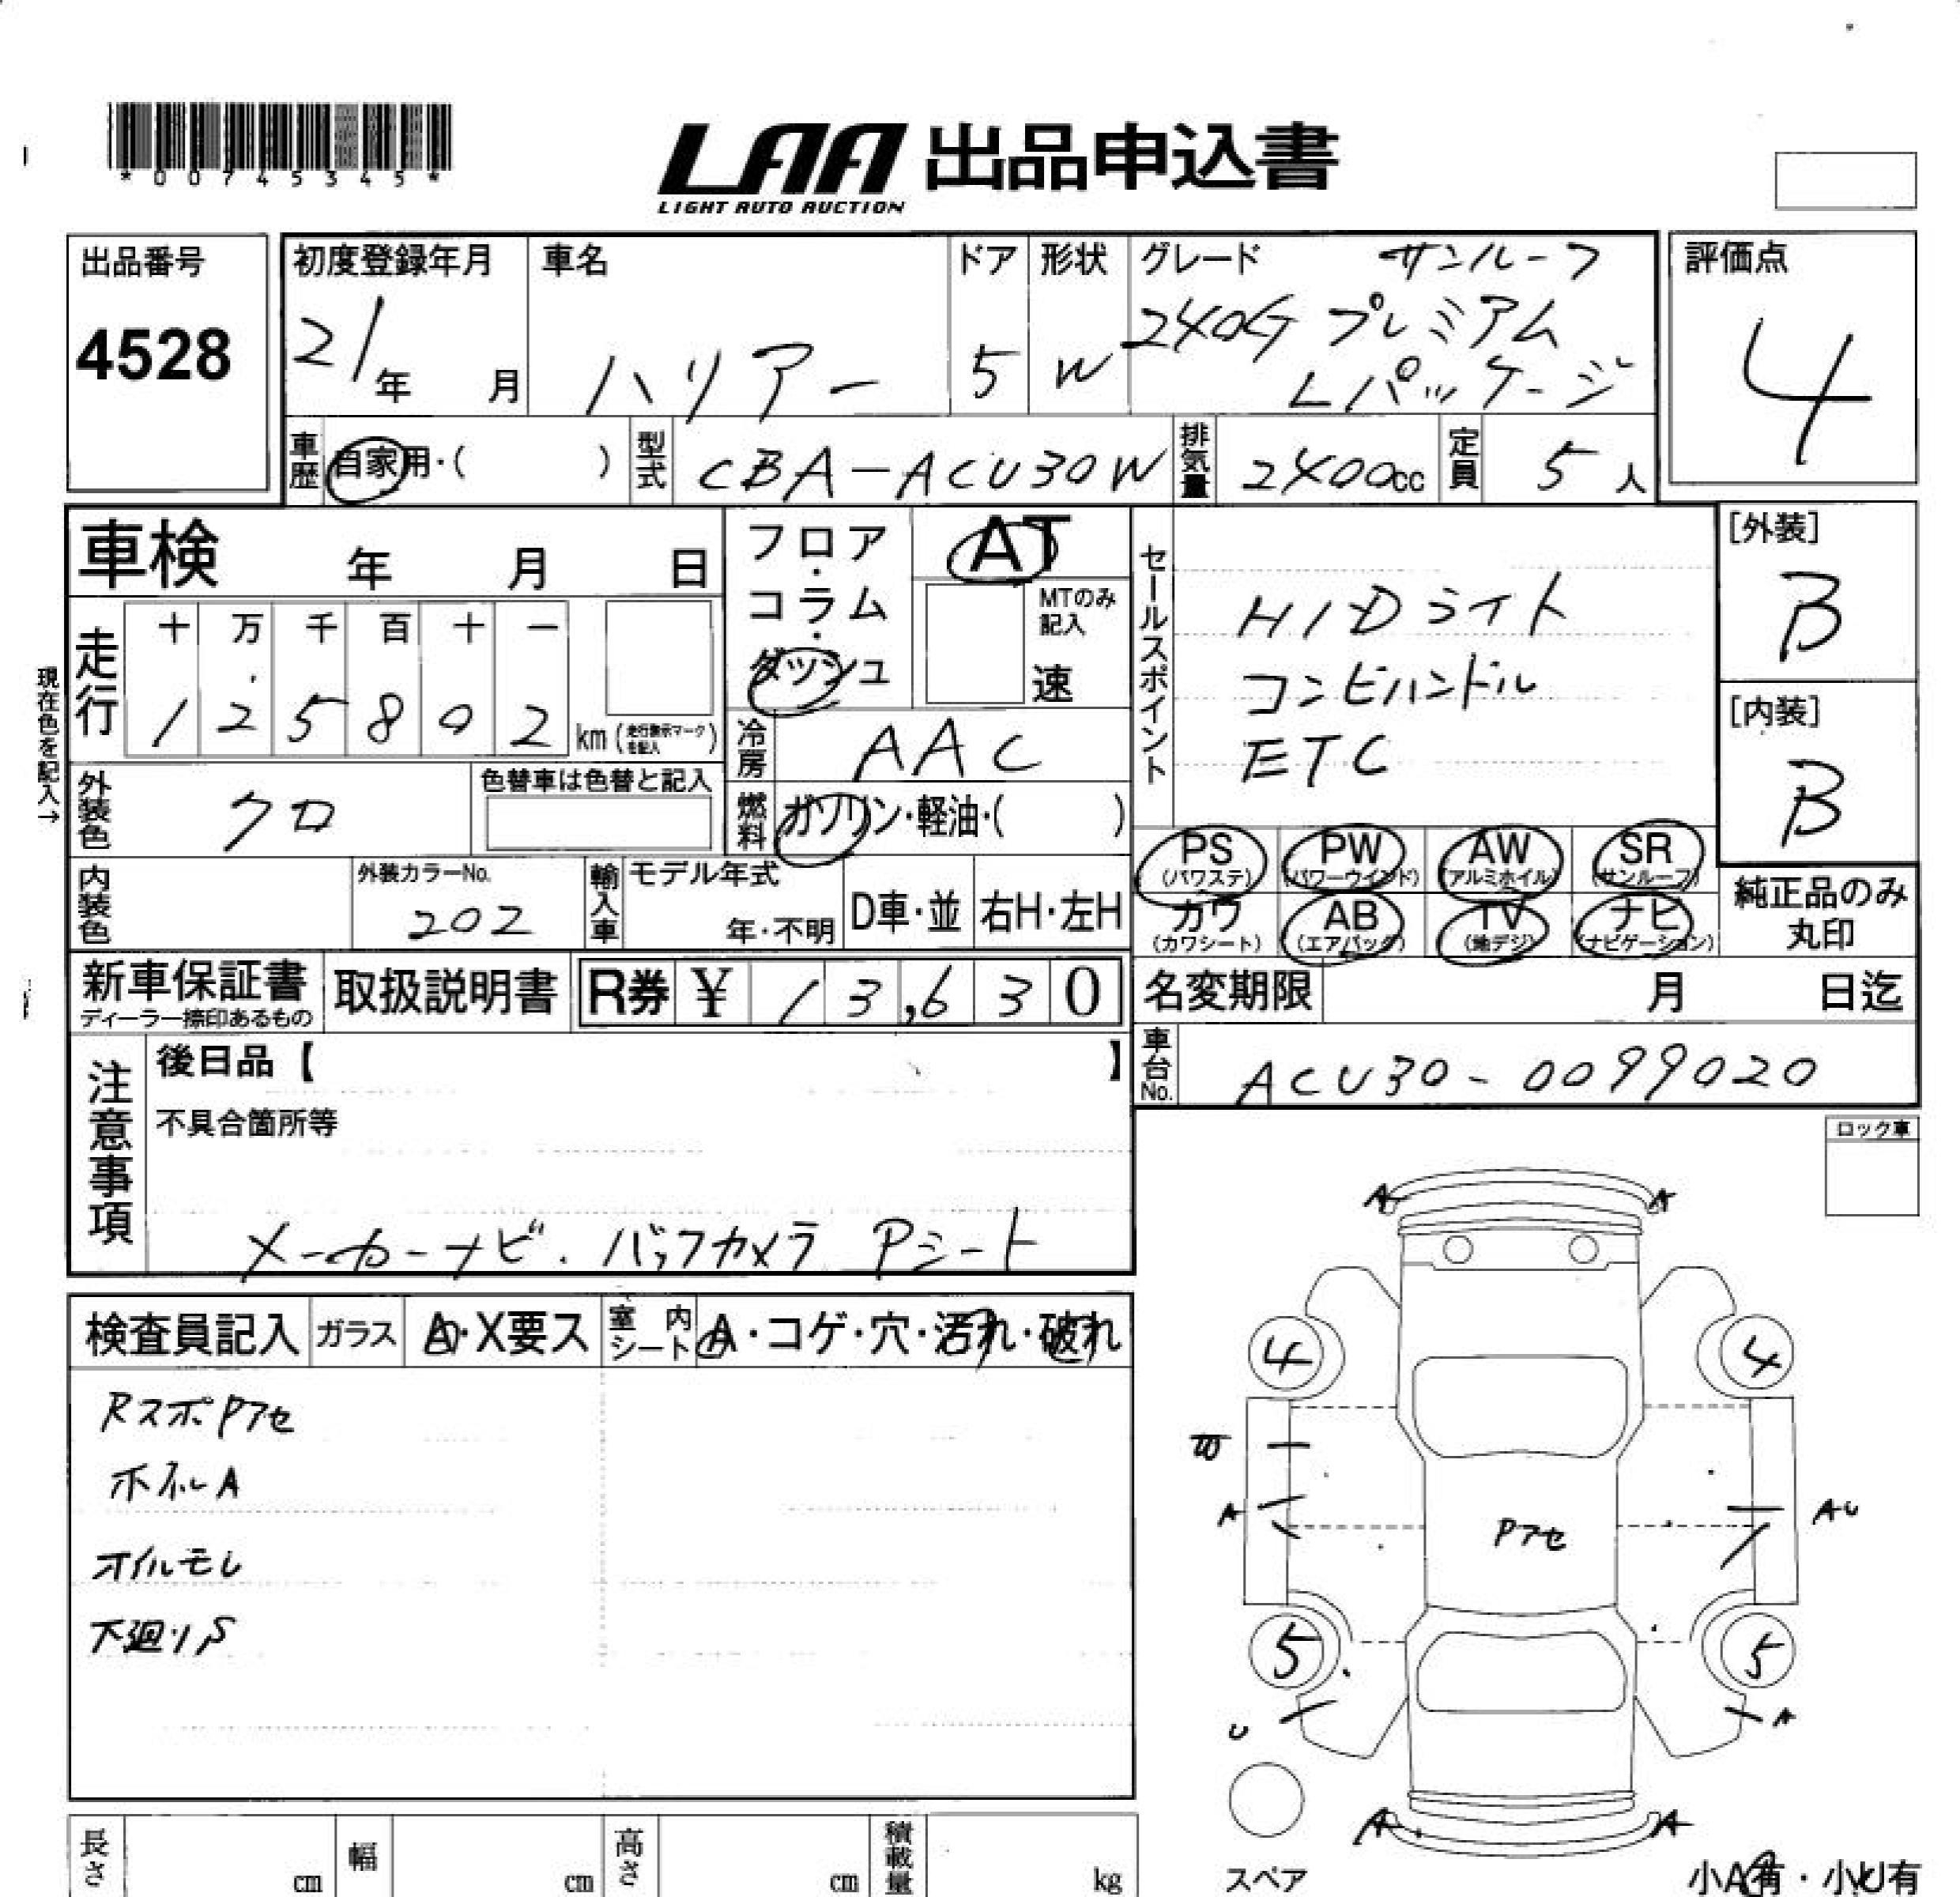 *00745345*
LAA 出品申込書
LIGHT AUTO AUCTION
出品番号
4528
初度登録年月
21年 月
車名
ハリアー
ドア
5
形状
W
グレード サンルーフ
240G プレミアム
Lパッケージ
評価点
4
車歴 自家用・( )
型式 CBA-ACU30W
排気量 2400cc
定員 5人
車検 年 月 日
現在色を記入→
走行 十 万 千 百 十 一
125802 km (走行表示マークを記入)
フロア・コラム・ダッシュ
AT
MTのみ記入
速
冷房 AAC
燃料 ガソリン・軽油・( )
セールスポイント
HIDライト
コンビハンドル
ETC
[外装]
B
[内装]
B
外装色 クロ
色替車は色替と記入
内装色
外装カラーNo.
202
輸入車 モデル年式
年・不明
D車・並 右H・左H
PS (パワステ) PW (パワーウインド) AW (アルミホイル) SR (サンルーフ)
カワ (カワシート) AB (エアバッグ) TV (地デジ) ナビ (ナビゲーション)
純正品のみ
丸印
新車保証書
ディーラー捺印あるもの
取扱説明書
R券 ¥ 13,630
名変期限 月 日迄
車台No. ACU30-0099020
注意事項
後日品【 】
不具合箇所等
メーカーナビ. バックカメラ Pシート
ロック車
検査員記入 ガラス A・X要ス 室内シート A・コゲ・穴・汚れ・破れ
RスポPアセ
ホイルA
オイルモレ
下廻りS
A A
4 4
A AU
Pアセ
5 5
U A
A A
スペア
小A有・小U有
長さ cm 幅 cm 高さ cm 積載量 kg